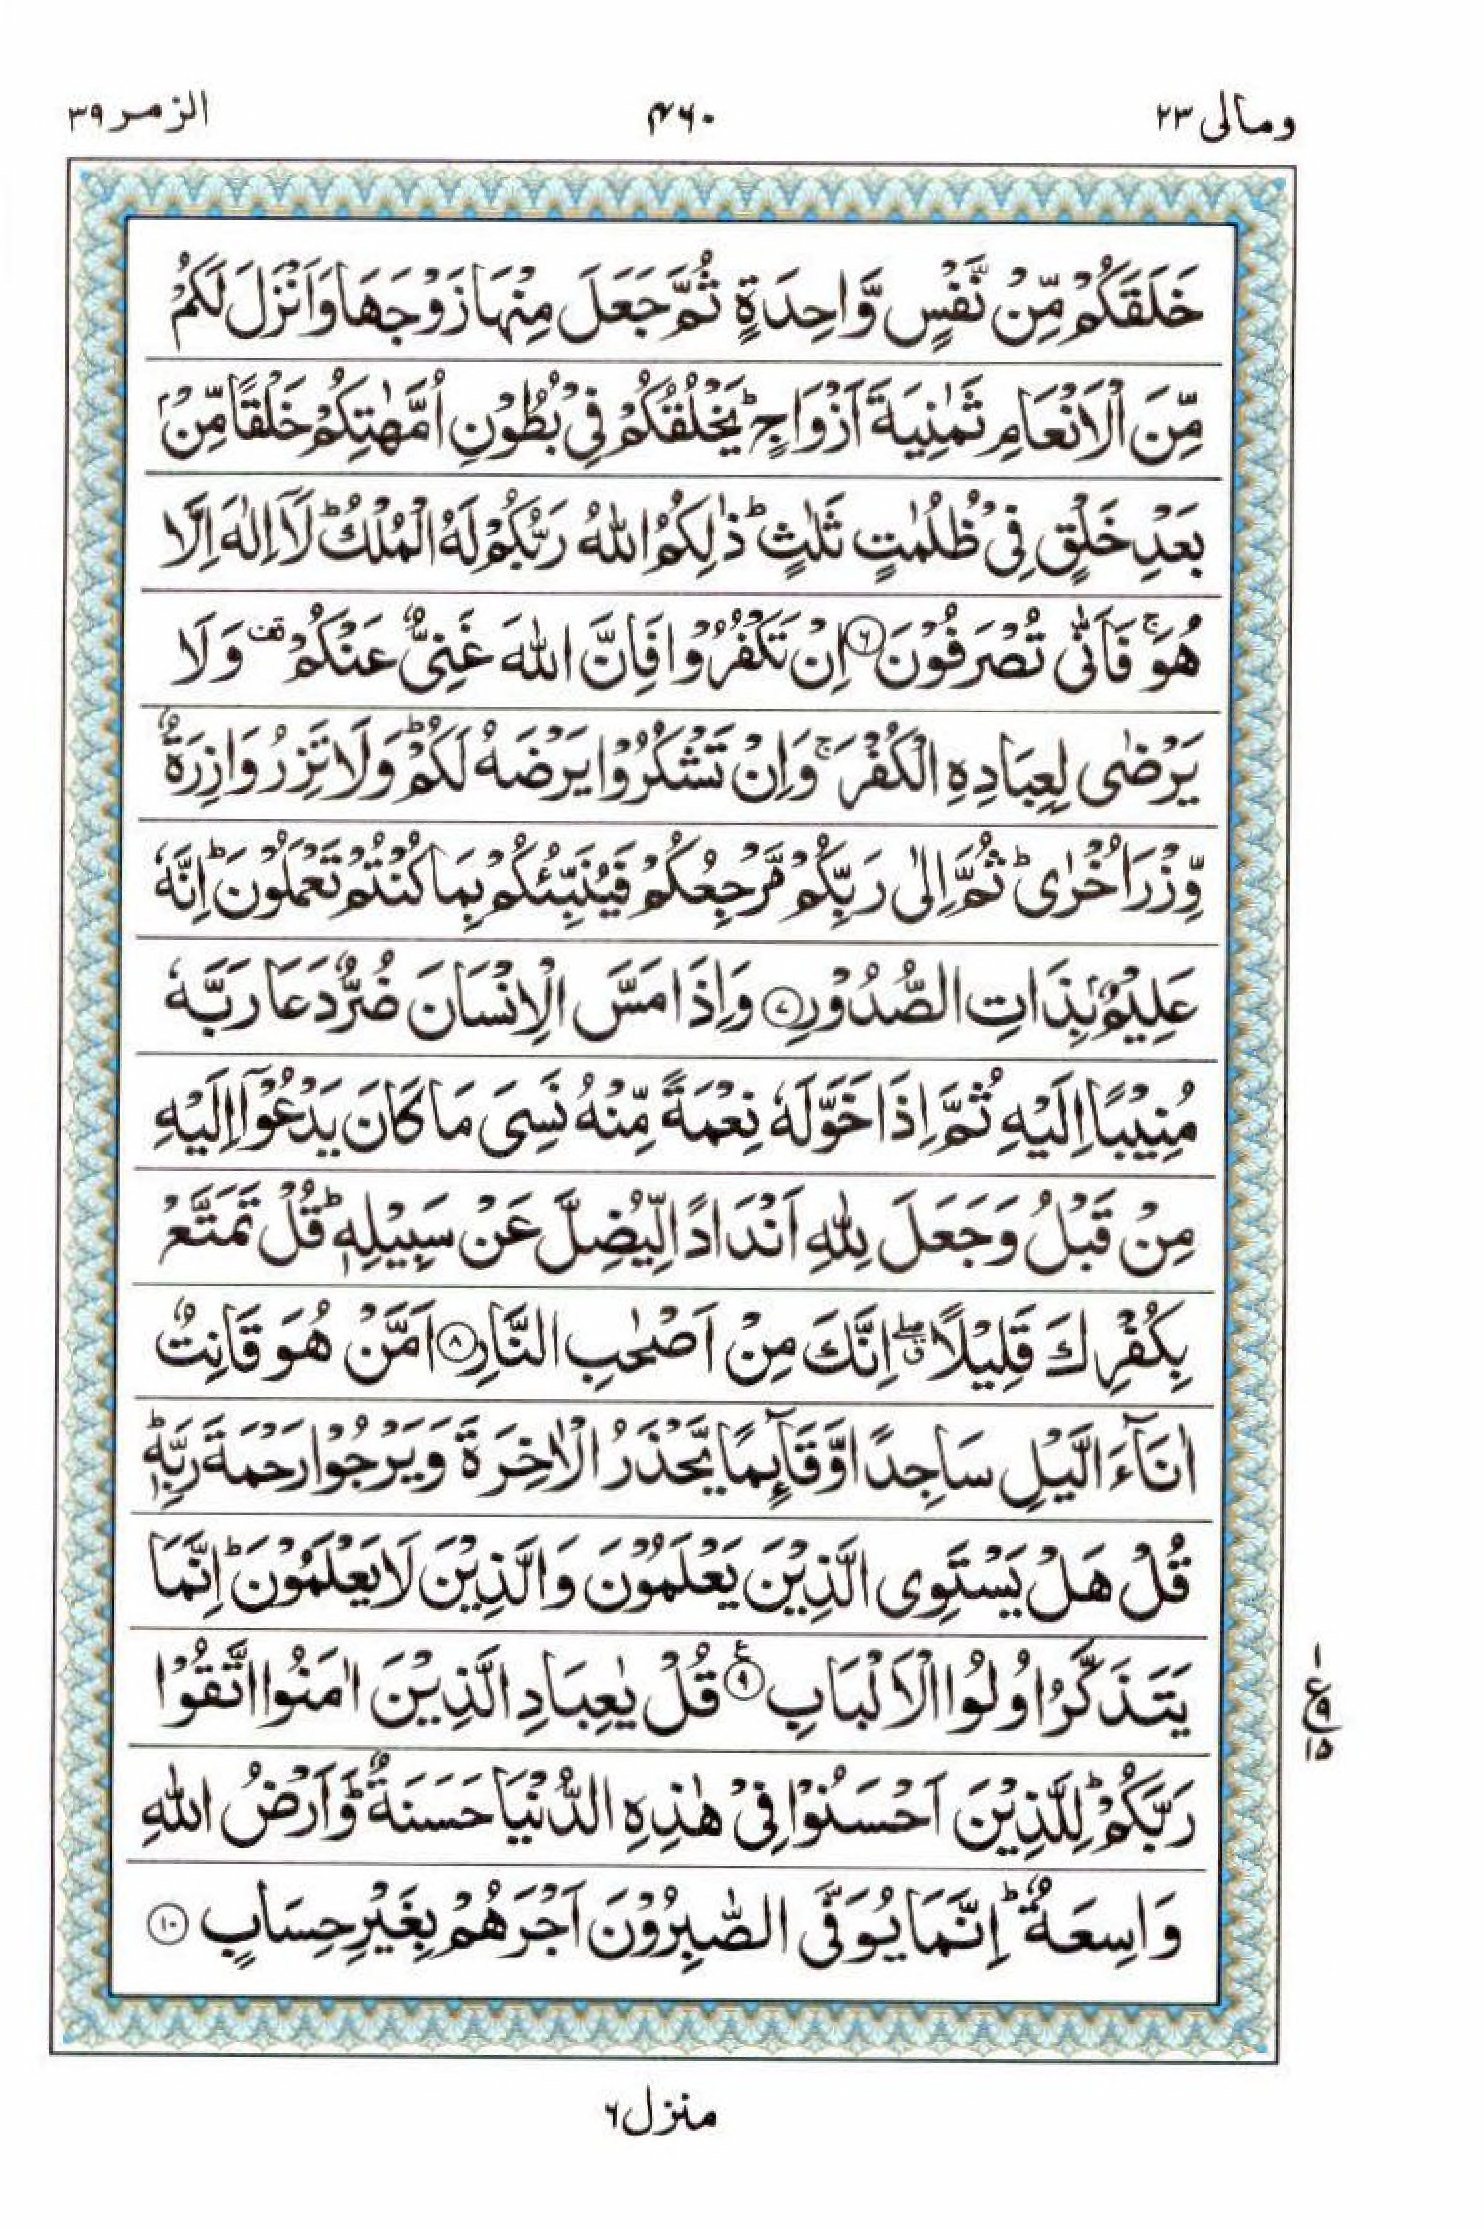 ومالی ۲۳
۴۶۰
الزمر ۳۹
خَلَقَكُمْ مِّنْ نَّفْسٍ وَّاحِدَةٍ ثُمَّ جَعَلَ مِنْهَا زَوْجَهَا وَاَنْزَلَ لَكُمْ
مِّنَ الْاَنْعَامِ ثَمٰنِيَةَ اَزْوَاجٍ ؕ يَخْلُقُكُمْ فِيْ بُطُوْنِ اُمَّهٰتِكُمْ خَلْقًا مِّنْۢ
بَعْدِ خَلْقٍ فِيْ ظُلُمٰتٍ ثَلٰثٍ ؕ ذٰلِكُمُ اللّٰهُ رَبُّكُمْ لَهُ الْمُلْكُ ؕ لَاۤ اِلٰهَ اِلَّا
هُوَ ۚ فَاَنّٰى تُصْرَفُوْنَ ﴿۶﴾ اِنْ تَكْفُرُوْا فَاِنَّ اللّٰهَ غَنِيٌّ عَنْكُمْ ۟ قف وَلَا
يَرْضٰى لِعِبَادِهِ الْكُفْرَ ۚ وَاِنْ تَشْكُرُوْا يَرْضَهُ لَكُمْ ؕ وَلَا تَزِرُ وَازِرَةٌ
وِّزْرَ اُخْرٰى ؕ ثُمَّ اِلٰى رَبِّكُمْ مَّرْجِعُكُمْ فَيُنَبِّئُكُمْ بِمَا كُنْتُمْ تَعْمَلُوْنَ ؕ اِنَّهٗ
عَلِيْمٌۢ بِذَاتِ الصُّدُوْرِ ﴿۷﴾ وَاِذَا مَسَّ الْاِنْسَانَ ضُرٌّ دَعَا رَبَّهٗ
مُنِيْبًا اِلَيْهِ ثُمَّ اِذَا خَوَّلَهٗ نِعْمَةً مِّنْهُ نَسِيَ مَا كَانَ يَدْعُوْۤا اِلَيْهِ
مِنْ قَبْلُ وَجَعَلَ لِلّٰهِ اَنْدَادًا لِّيُضِلَّ عَنْ سَبِيْلِهٖ ؕ قُلْ تَمَتَّعْ
بِكُفْرِكَ قَلِيْلًا ۖ ق اِنَّكَ مِنْ اَصْحٰبِ النَّارِ ﴿۸﴾ اَمَّنْ هُوَ قَانِتٌ
اٰنَآءَ الَّيْلِ سَاجِدًا وَّقَآىِٕمًا يَّحْذَرُ الْاٰخِرَةَ وَيَرْجُوْا رَحْمَةَ رَبِّهٖ ؕ
قُلْ هَلْ يَسْتَوِى الَّذِيْنَ يَعْلَمُوْنَ وَالَّذِيْنَ لَا يَعْلَمُوْنَ ؕ اِنَّمَا
يَتَذَكَّرُ اُولُوا الْاَلْبَابِ ﴿۹﴾ ع قُلْ يٰعِبَادِ الَّذِيْنَ اٰمَنُوا اتَّقُوْا
رَبَّكُمْ ؕ لِلَّذِيْنَ اَحْسَنُوْا فِيْ هٰذِهِ الدُّنْيَا حَسَنَةٌ ؕ وَاَرْضُ اللّٰهِ
وَاسِعَةٌ ؕ اِنَّمَا يُوَفَّى الصّٰبِرُوْنَ اَجْرَهُمْ بِغَيْرِ حِسَابٍ ﴿۱۰﴾
۱
ع
۹
۱۵
منزل ۶